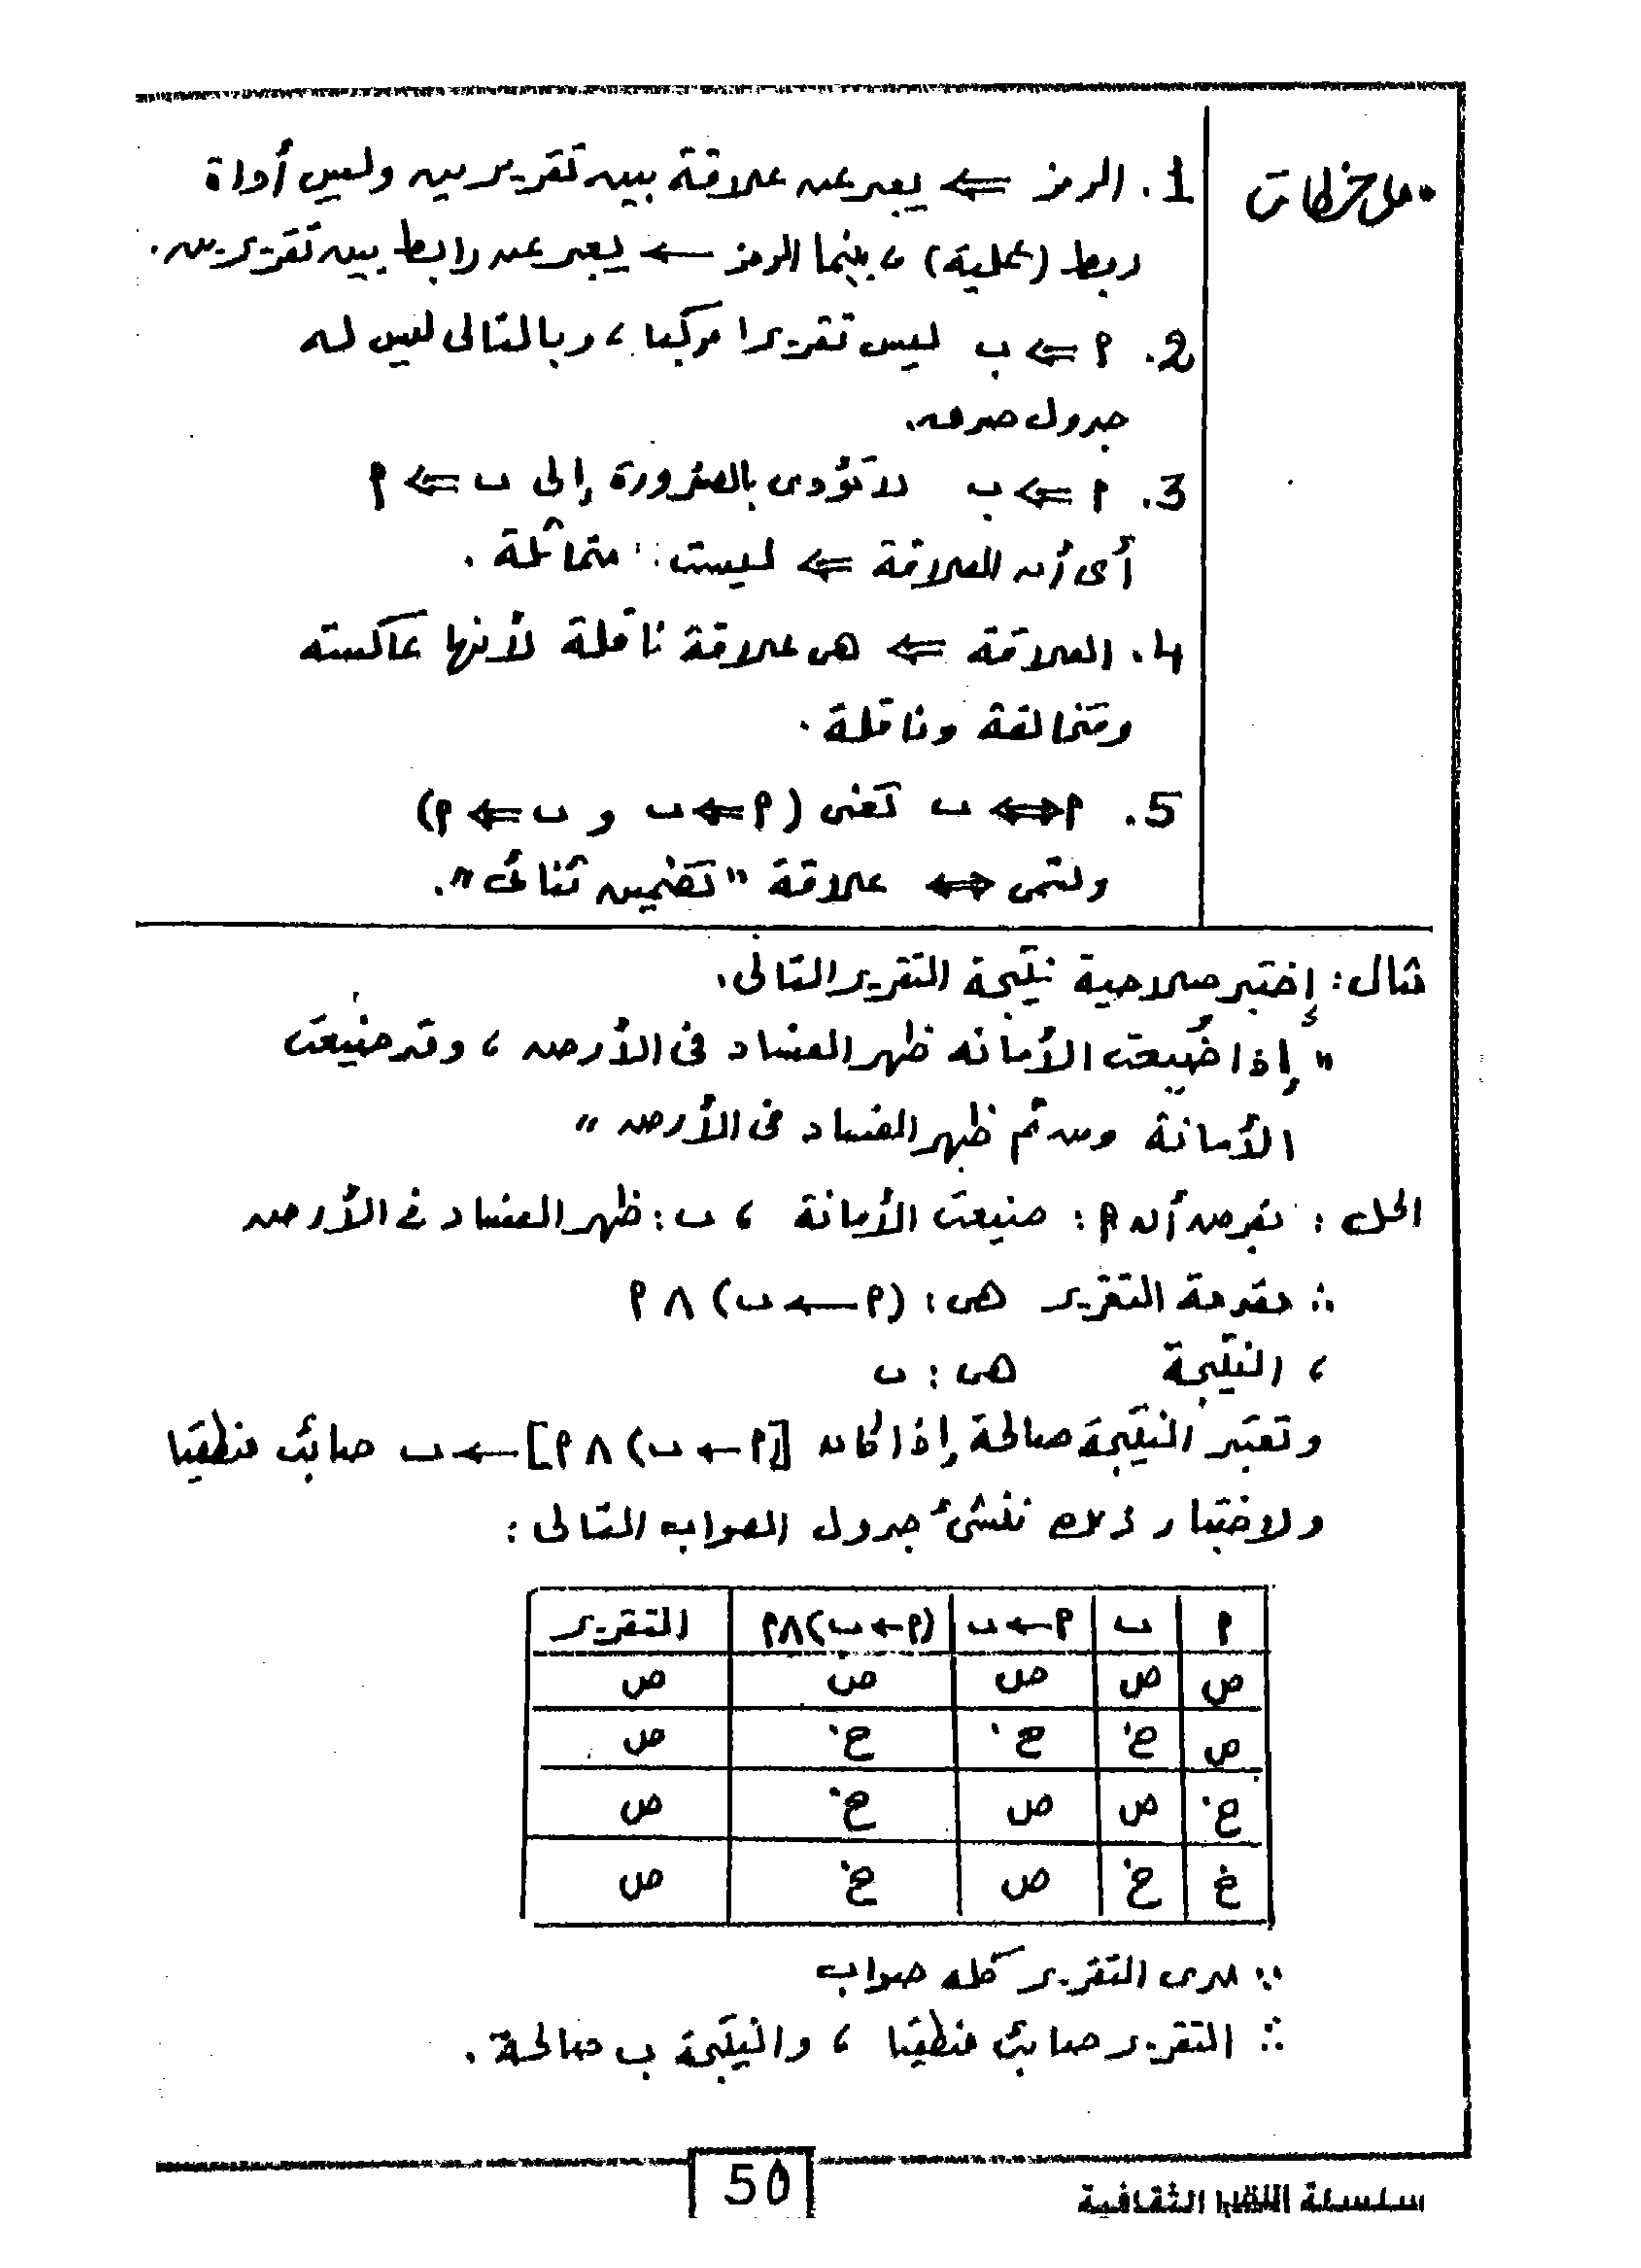 • ملاحظات
1. الرمز ⇐ يعبر عن علاقة بين تقريرين وليس أداة
ربط (عملية) ، بينما الرمز ← يعبر عن رابط بين تقريرين.
2. م ⇐ ب ليس تقريرا مركبا ، وبالتالى ليس له
جدول صدق.
3. م ⇐ ب لا تؤدى بالضرورة إلى ب ⇐ م
أى أن العلاقة ⇐ ليست متماثلة .
4. العلاقة ⇐ هى علاقة ناقلة لأنها عاكسته
ومتخالفة وناقلة .
5. م ⇔ ب تعنى (م ⇐ ب و ب ⇐ م)
وتسمى ⇔ علاقة "تضمين ثنائى".
مثال: إختبر صلاحية نتيجة التقرير التالى.
" إذا ضُيعت الأمانه ظهر الفساد فى الأرض ، وقد ضيعت
الأمانة ومن ثم ظهر الفساد فى الأرض "
الحل : نفرض أن م : ضيعت الأمانة ، ب : ظهر الفساد فى الأرض
∴ مقدمة التقرير هى : (م ← ب) ∧ م
، النتيجة هى : ب
وتعتبر النتيجة صالحة إذا كان [(م ← ب) ∧ م] ← ب صائب منطقيا
ولاختبار ذلك ننشئ جدول الصواب التالى :
م | ب | م ← ب | (م ← ب) ∧ م | التقرير
ص | ص | ص | ص | ص
ص | خ | خ | خ | ص
خ | ص | ص | خ | ص
خ | خ | ص | خ | ص
∵ مدى التقرير كله صواب
∴ التقرير صائب منطقيا ، والنتيجة ب صالحة .
50
سلسلة الثقافية